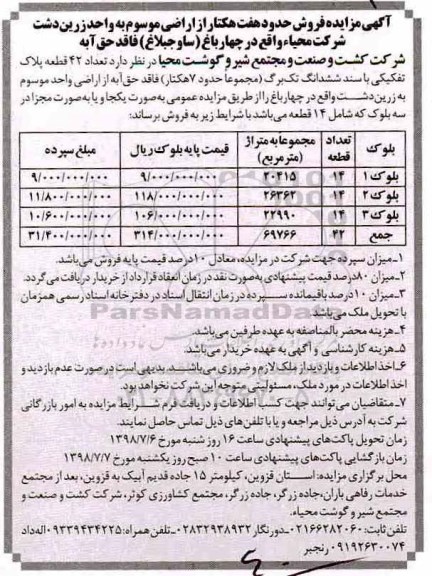 آگهی مزایده فروش حدود هفت هکتار از اراضی موسوم به واحد زرین دشت
شرکت محیاء واقع در چهارباغ (ساوجبلاغ) فاقد حق آبه
شرکت کشت و صنعت و مجتمع شیر و گوشت محیا در نظر دارد تعداد ۴۲ قطعه پلاک
تفکیکی با سند ششدانگ تک برگ (مجموعا حدود ۷هکتار) فاقد حق آبه از اراضی واحد موسوم
به زرین دشت واقع در چهارباغ را از طریق مزایده عمومی به صورت یکجا و یا به صورت مجزا در
سه بلوک که شامل ۱۴ قطعه می باشد با شرایط زیر به فروش برساند:
بلوک تعداد قطعه مجموعا به متراژ (مترمربع) قیمت پایه بلوک ریال مبلغ سپرده
بلوک ۱ ۱۴ ۲۰۴۱۵ ۹/۰۰۰/۰۰۰/۰۰۰ ۹/۰۰۰/۰۰۰/۰۰۰
بلوک ۲ ۱۴ ۲۶۳۶۲ ۱۱۸/۰۰۰/۰۰۰/۰۰۰ ۱۱/۸۰۰/۰۰۰/۰۰۰
بلوک ۳ ۱۴ ۲۲۹۹۰ ۱۰۶/۰۰۰/۰۰۰/۰۰۰ ۱۰/۶۰۰/۰۰۰/۰۰۰
جمع ۴۲ ۶۹۷۶۶ ۳۱۴/۰۰۰/۰۰۰/۰۰۰ ۳۱/۴۰۰/۰۰۰/۰۰۰
۱ـ میزان سپرده جهت شرکت در مزایده، معادل ۱۰درصد قیمت پایه فروش می باشد.
۲ـ میزان ۸۰درصد قیمت پیشنهادی به صورت نقد در زمان انعقاد قرارداد از خریدار دریافت می گردد.
۳ـ میزان ۱۰ درصد باقیمانده سپرده در زمان انتقال اسناد در دفترخانه اسناد رسمی همزمان
با تحویل ملک می باشد.
۴ـ هزینه محضر بالمناصفه به عهده طرفین می باشد.
۵ـ هزینه کارشناسی و آگهی به عهده خریدار می باشد.
۶ـ اخذ اطلاعات و بازدید از ملک لازم و ضروری می باشد. بدیهی است در صورت عدم بازدید و
اخذ اطلاعات در مورد ملک، مسئولیتی متوجه این شرکت نخواهد بود.
۷ـ متقاضیان می توانند جهت کسب اطلاعات و دریافت فرم شرایط مزایده به امور بازرگانی
شرکت به آدرس ذیل مراجعه و یا با تلفن های ذیل تماس حاصل نمایند.
زمان تحویل پاکت های پیشنهادی ساعت ۱۶ روز شنبه مورخ ۱۳۹۸/۷/۶
زمان بازگشایی پاکت های پیشنهادی ساعت ۱۰ صبح روز یکشنبه مورخ ۱۳۹۸/۷/۷
محل برگزاری مزایده: استان قزوین، کیلومتر ۱۵ جاده قدیم آبیک به قزوین، بعد از مجتمع
خدمات رفاهی باران، جاده زرگر، جاده زرگر، مجتمع کشاورزی کوثر، شرکت کشت و صنعت و
مجتمع شیر و گوشت محیاء.
تلفن ثابت: ۰۲۱۶۶۲۸۲۰۶۰ـ دورنگار ۰۲۸۳۲۹۳۸۹۳۲ـ تلفن همراه: ۰۹۳۳۹۴۳۴۲۲۵ اله داد
۰۹۱۹۲۶۳۰۰۷۴ رنجبر
ParsNamadData